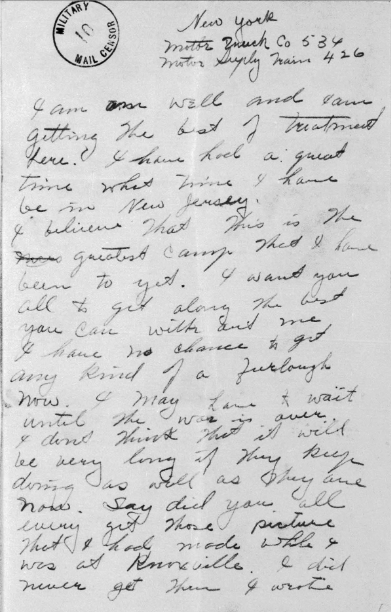 MILITARY
10
MAIL CENSOR
New York
Motor Truck Co 534
Motor Supply Train 426
I am well and I am
getting the best of treatment
here. I have had a great
time what time I have
be in New Jersey.
I believe that this is the
greatest camp that I have
been to yet. I want you
all to get along the best
you can with out me
I have no chance to get
any kind of a furlough
now. I may have to wait
until the war is over.
I dont think that it will
be very long if they keep
doing as well as they are
now. Say did you all
every get those picture
that I had made while I
was at Knoxville. I did
never get them I wrote